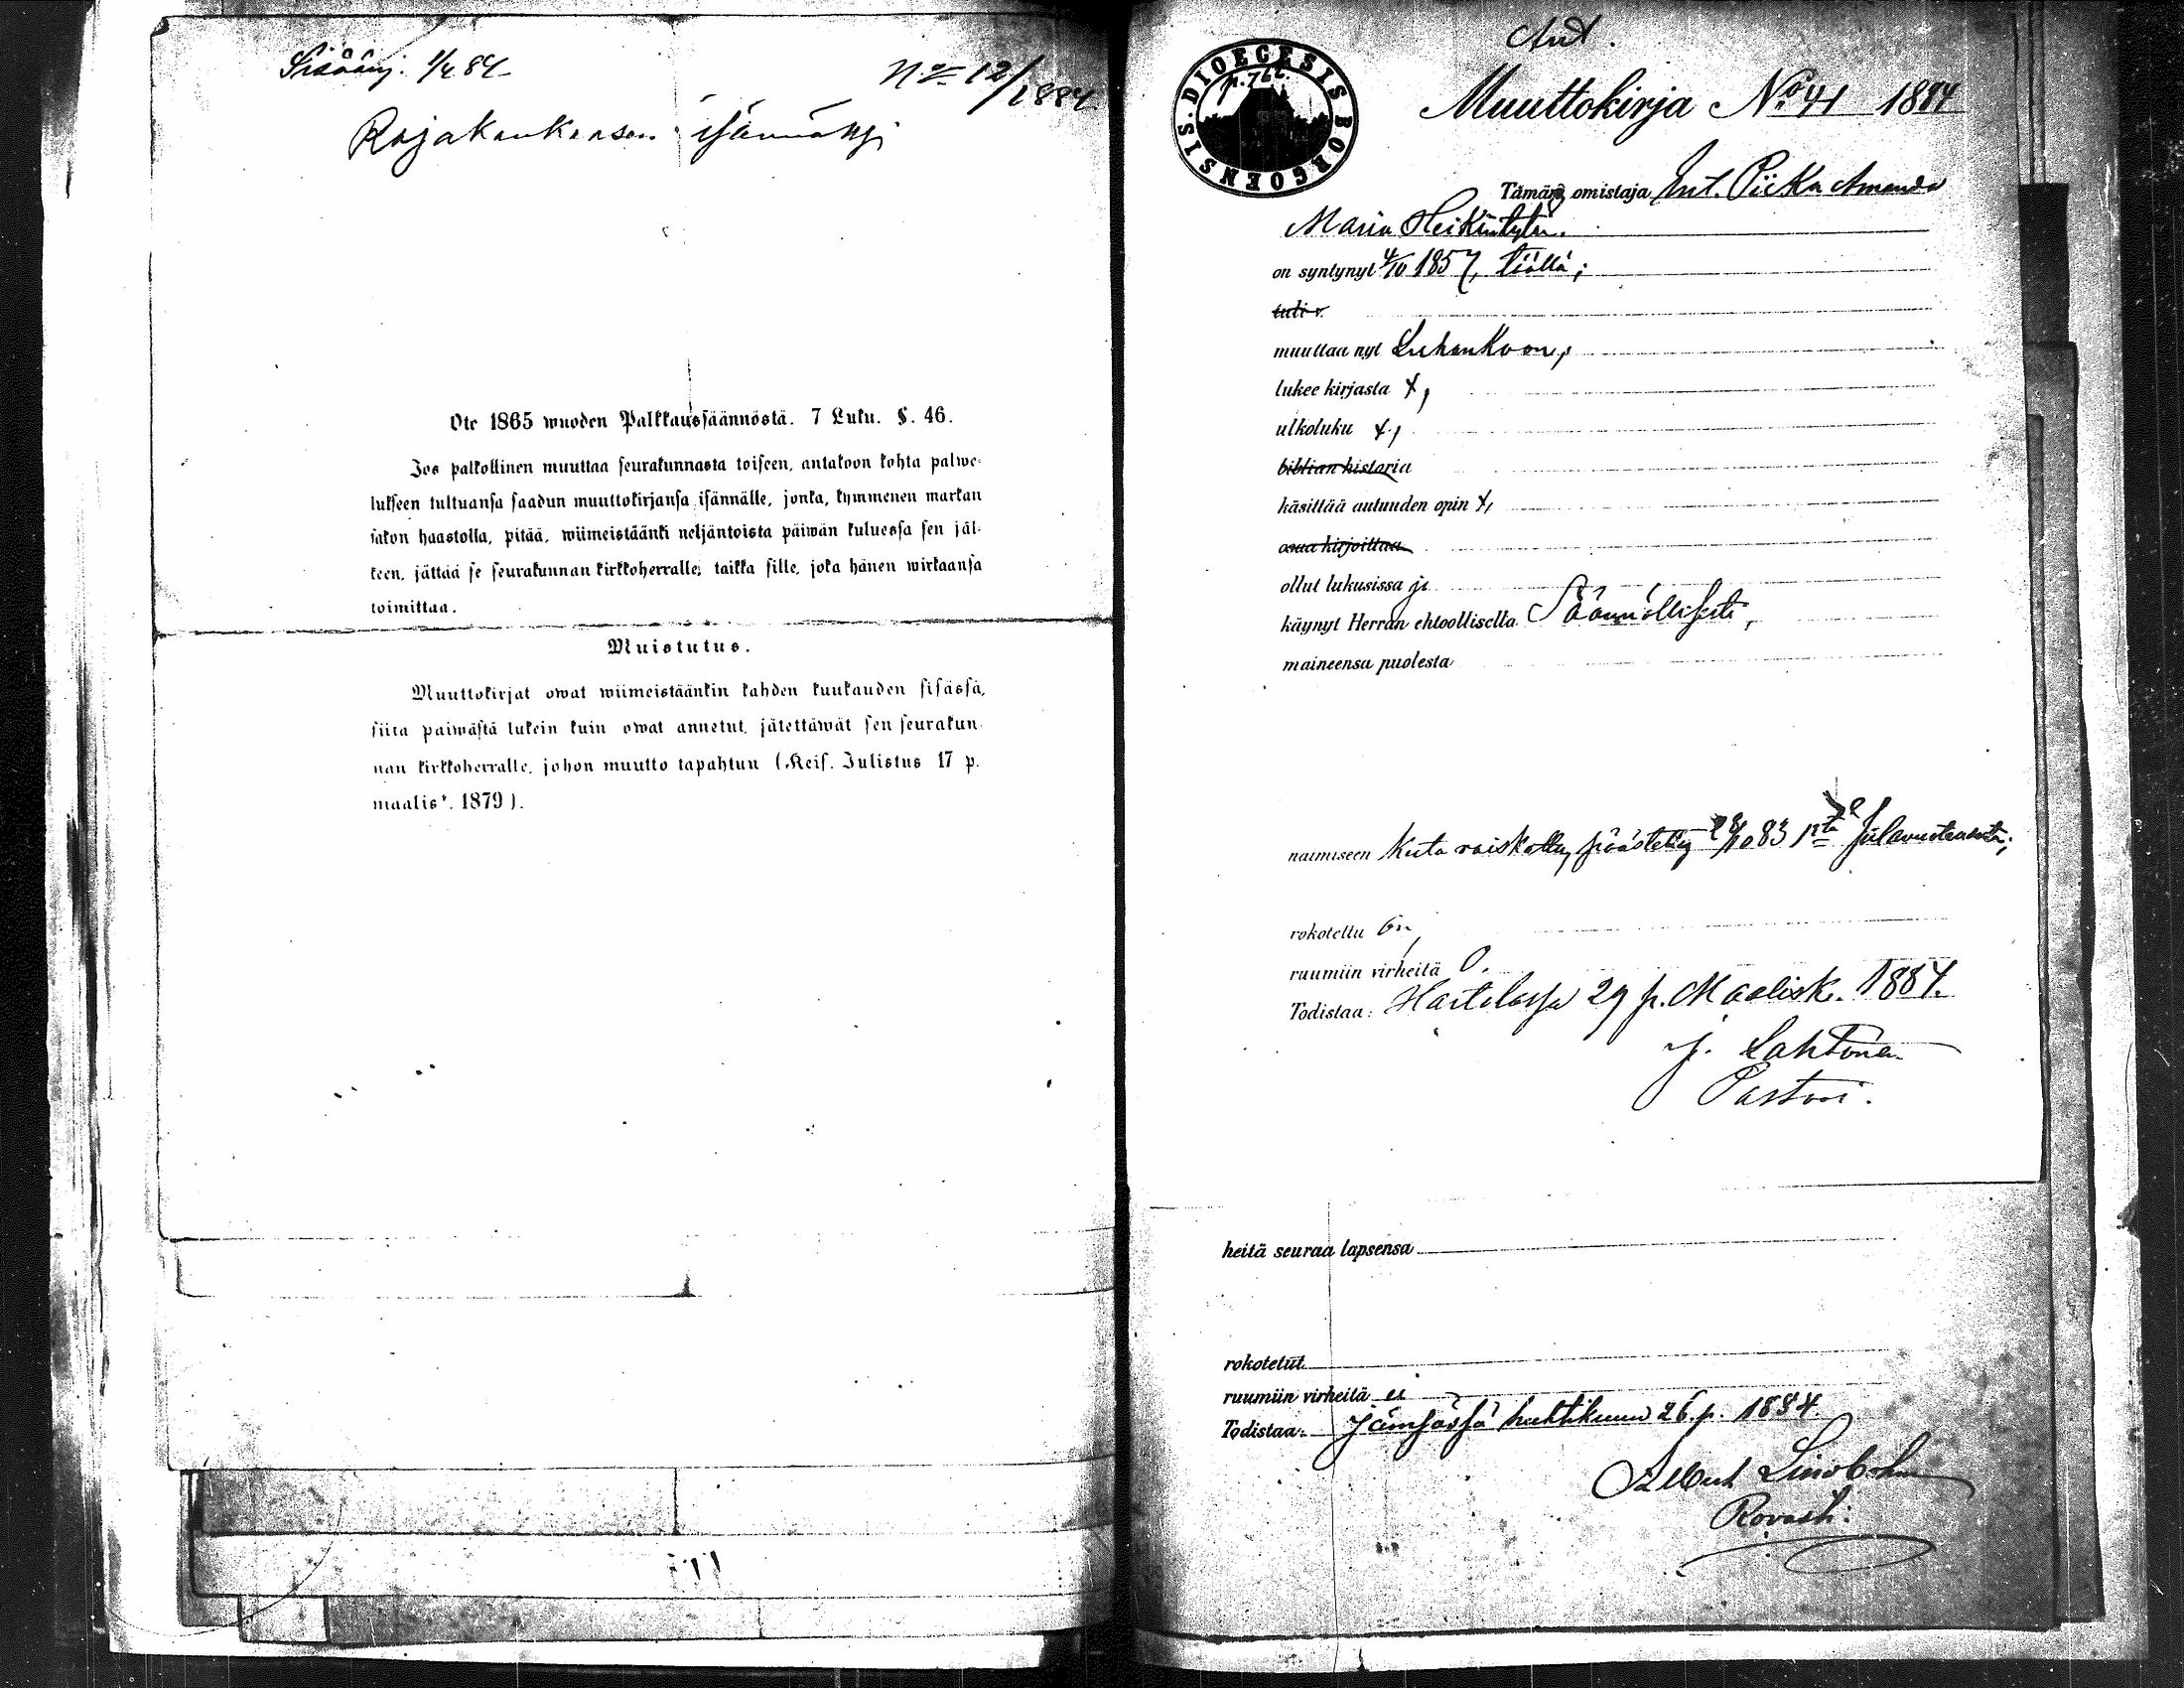 Sisäänj. 1/4 84
No 12/1884
Rajakankaan isännälle
Ote 1865 wuoden Palkkaussäännöstä. 7 Luku. §. 46.
Jos palkollinen muuttaa seurakunnasta toiseen, antakoon kohta palwe-
lukseen tultuansa saadun muuttokirjansa isännälle, jonka, kymmenen markan
sakon haastolla, pitää, wiimeistäänki neljäntoista päiwän kuluessa sen jäl-
keen, jättää se seurakunnan kirkkoherralle; taikka sille, joka hänen wirkaansa
toimittaa.
Muistutus.
Muuttokirjat owat wiimeistäänkin kahden kuukauden sisässä,
siitä päiwästä lukein kuin owat annetut, jätettäwät sen seurakun-
nan kirkkoherralle, johon muutto tapahtuu (Keis. Julistus 17 p.
maalisk. 1879).
DIOECESIS BORGOENSIS.
p. 766.
Muuttokirja No 41 1884
Tämän omistaja Int. Piika Amanda
Maria Heikintytär.
on syntynyt 4/10 1857, täällä;
tuli v.
muuttaa nyt Luhankoon,
lukee kirjasta x,
ulkoluku x,
biblian historia
käsittää autuuden opin x,
osaa kirjoittaa
ollut lukusissa ja
käynyt Herran ehtoollisella Säännöllisesti,
maineensa puolesta
naimiseen päästetty 28/10 83
rokotettu on,
ruumiin virheitä 0.
Todistaa: Hartolassa 29 p. Maalisk. 1884.
J. Lahtonen
Pastori.
heitä seuraa lapsensa
rokotetut
ruumiin virheitä ei
Todistaa: Jämsässä huhtikuun 26 p. 1884.
Albert Lindbohm
Rovasti.